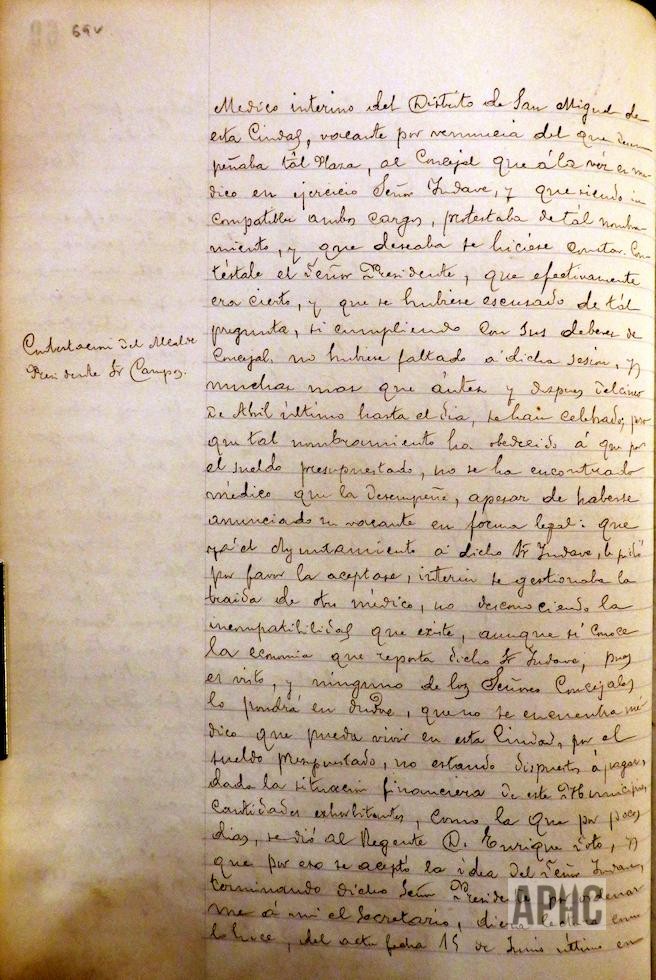 69v
Medico interino del Distrito de San Miguel de
esta Ciudad, vacante por renuncia del que desem
peñaba tál Plaza, al Concejal que á la véz es mé
dico en ejercicio Señor Indave, y que siendo in
compatibles ambos cargos, protestaba de tál nombra
miento, y que deseaba se hiciése constar. Con
téstale el Señor Presidente, que efectivamente
era cierto, y que se hubiese escusado de tál
pregunta, si cumpliendo con sus deberes de
Contestacion del Alcalde
Presidente Sr Campos.
Concejal, no hubiese faltado á dicha sesion, y
muchas mas que ántes y despues del cinco
de Abril último hasta el dia, se han celebrado, pero
que tal nombramiento ha obedecido á que por
el sueldo presupuestado, no se ha encontrado
médico que la desempeñe, apesar de haberse
anunciado su vacante en forma legal: que
el Ayuntamiento á dicho Sr Indave, le pidió
por favor la aceptase, interin se gestionaba la
traida de otro médico, no desconociendo la
incompatibilidad que existe, aunque sí conoce
la economia que reporta dicho Sr Indave; pues
es visto, y ninguno de los Señores Concejales
lo pondrá en duda, que no se encuentra mé
dico que pueda vivir en esta Ciudad, por el
sueldo presupuestado, no estando dispuesto á pagar,
dada la situacion financiera de este Municipio,
cantidades exhorbitantes, como la que por pocos
dias, se dió al Regente D. Enrique Soto, y
que por eso se aceptó la idea del Señor Indave,
terminando dicho Señor Presidente por ordenar
me á mi el Secretario, diera lectura como
lo hice, del acta fecha 15 de Junio último en
APHC